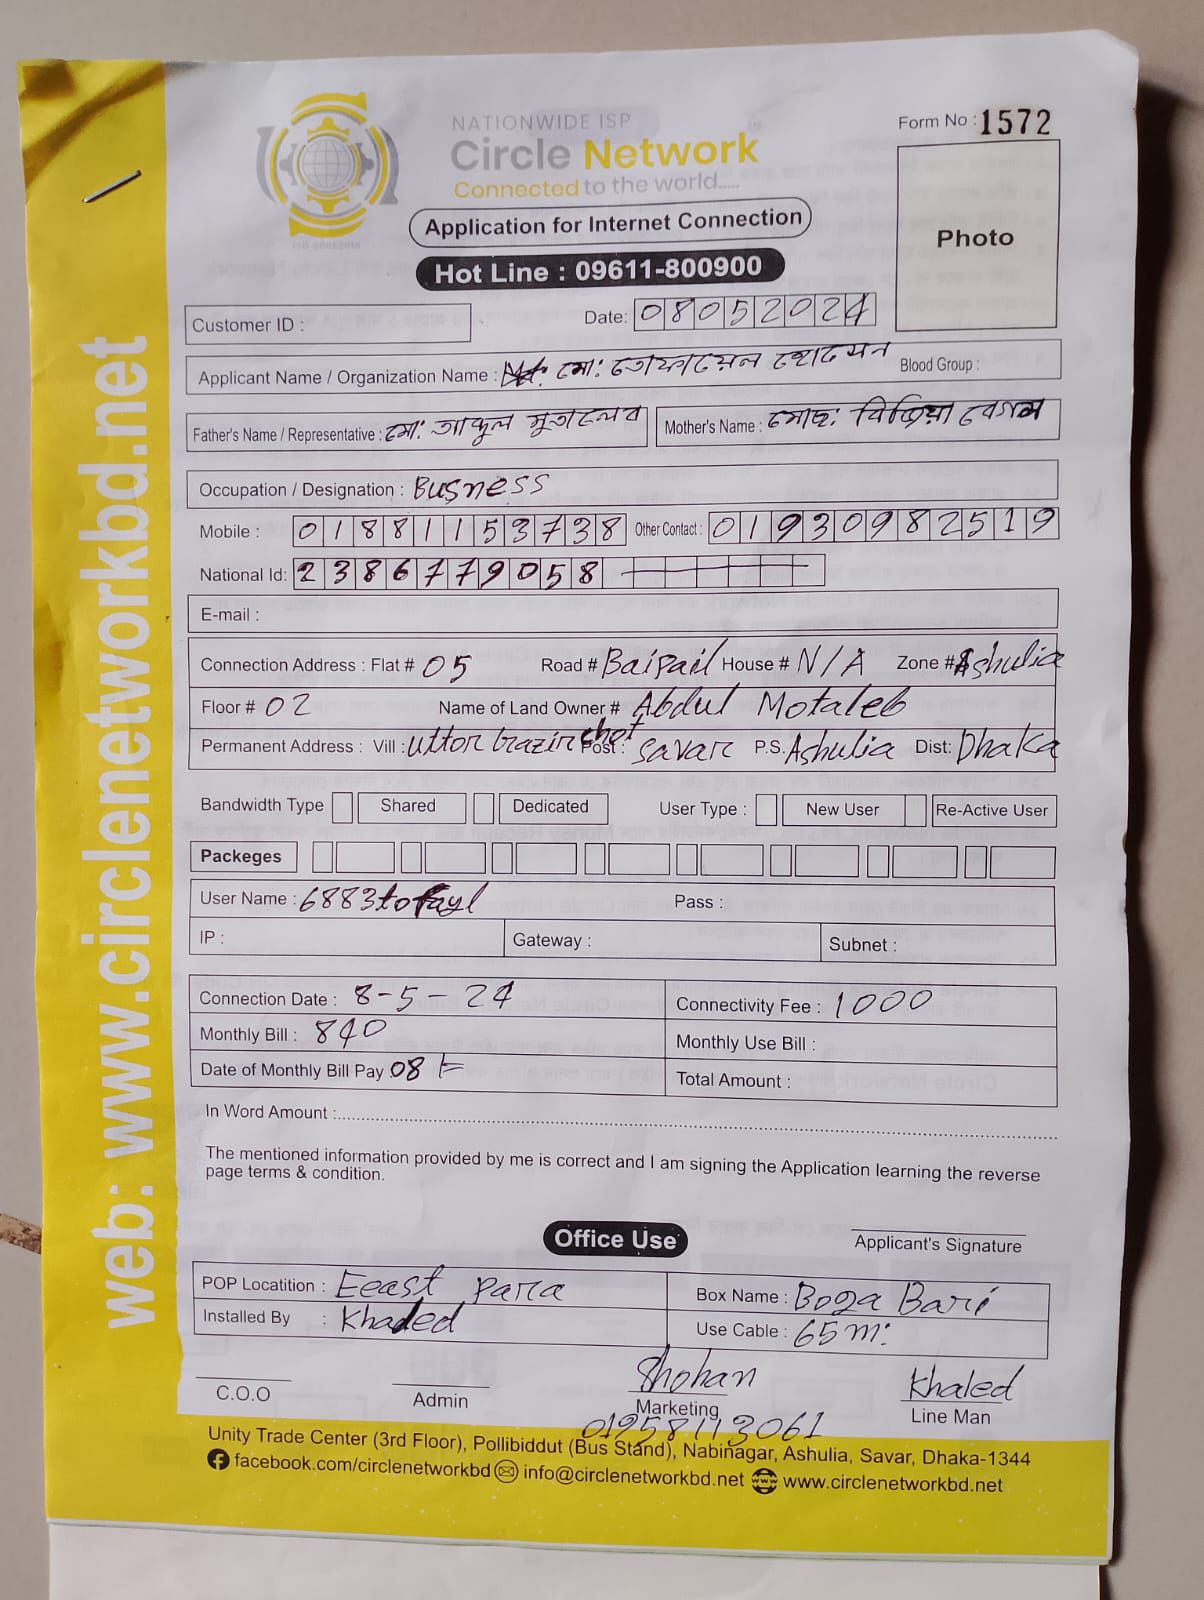 NATIONWIDE ISP
Circle Network
Connected to the world.....
ISO 9001:2015
Form No : 1572
Photo
Application for Internet Connection
Hot Line : 09611-800900
Customer ID :
Date: 08052024
Applicant Name / Organization Name : মো: তোফায়েল হোসেন Blood Group :
Father's Name / Representative : মো: আব্দুল মুতালেব Mother's Name : মোছ: বেগম
Occupation / Designation : Busness
Mobile : 01881153738 Other Contact : 01930982519
National Id: 2386779058
E-mail :
Connection Address : Flat # 05 Road # Baipail House # N/A Zone # Ashulia
Floor # 02 Name of Land Owner # Abdul Motaleb
Permanent Address : Vill : uttor Post : Savar P.S. Ashulia Dist: Dhaka
Bandwidth Type Shared Dedicated User Type : New User Re-Active User
Packeges
User Name : 6883tofayl Pass :
IP : Gateway : Subnet :
Connection Date : 8-5-24 Connectivity Fee : 1000
Monthly Bill : 840 Monthly Use Bill :
Date of Monthly Bill Pay 08 Total Amount :
In Word Amount :
The mentioned information provided by me is correct and I am signing the Application learning the reverse
page terms & condition.
Applicant's Signature
Office Use
POP Locatition : Eeast para Box Name : Boga Bari
Installed By : Khaded Use Cable : 65 m:
Shohan Khaled
C.O.O Admin Marketing Line Man
01958113061
Unity Trade Center (3rd Floor), Pollibiddut (Bus Stand), Nabinagar, Ashulia, Savar, Dhaka-1344
facebook.com/circlenetworkbd info@circlenetworkbd.net www.circlenetworkbd.net
web: www.circlenetworkbd.net